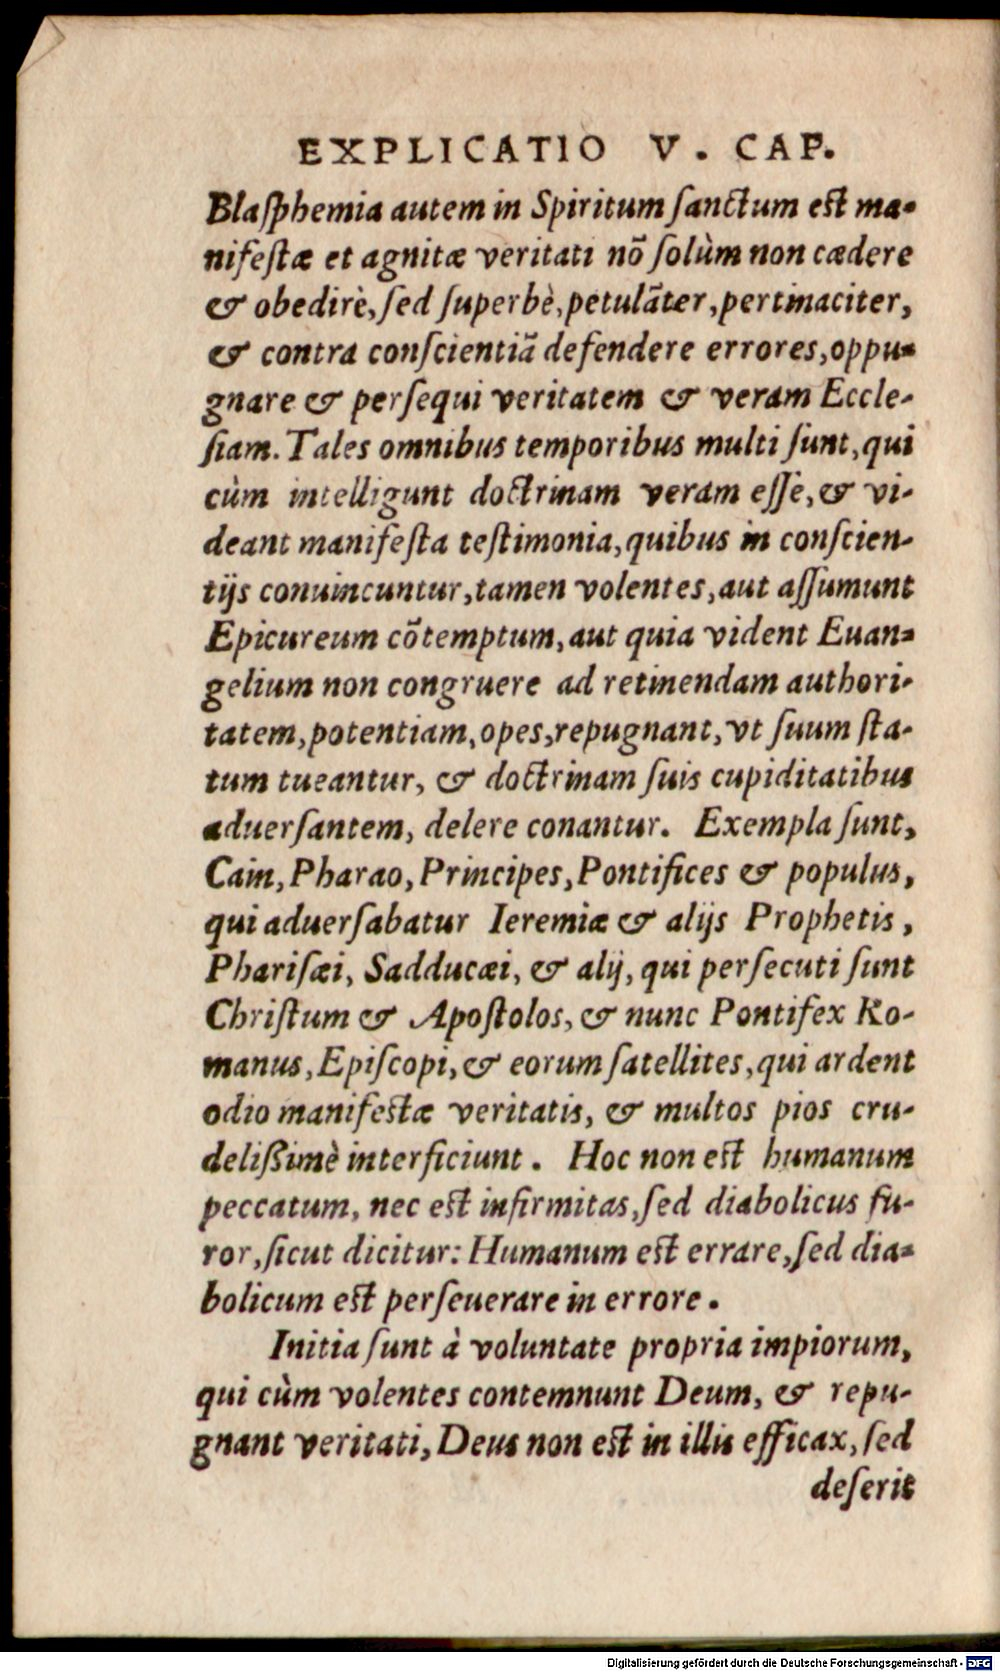 EXPLICATIO V. CAP.
Blaſphemia autem in Spiritum ſanctum est ma-
nifeſtæ et agnitæ veritati nō ſolùm non cædere
& obedirè, ſed ſuperbè, petulāter, pertinaciter,
& contra conſcientiā defendere errores, oppu-
gnare & perſequi veritatem & veram Eccle-
ſiam. Tales omnibus temporibus multi ſunt, qui
cùm intelligunt doctrinam veram eſſe, & vi-
deant manifeſta teſtimonia, quibus in conſcien-
tijs conuincuntur, tamen volentes, aut aſſumunt
Epicureum cōtemptum, aut quia vident Euan-
gelium non congruere ad retinendam authori-
tatem, potentiam, opes, repugnant, vt ſuum ſta-
tum tueantur, & doctrinam ſuis cupiditatibus
aduerſantem, delere conantur. Exempla ſunt,
Cain, Pharao, Principes, Pontifices & populus,
qui aduerſabatur Ieremiæ & alijs Prophetis,
Phariſæi, Sadducæi, & alij, qui perſecuti ſunt
Chriſtum & Apoſtolos, & nunc Pontifex Ro-
manus, Epiſcopi, & eorum ſatellites, qui ardent
odio manifestæ veritatis, & multos pios cru-
delißimè interficiunt. Hoc non est humanum
peccatum, nec est infirmitas, ſed diabolicus fu-
ror, ſicut dicitur: Humanum est errare, ſed dia-
bolicum est perſeuerare in errore.
Initia ſunt à voluntate propria impiorum,
qui cùm volentes contemnunt Deum, & repu-
gnant veritati, Deus non est in illis efficax, ſed
deſerit
Digitalisierung gefördert durch die Deutsche Forschungsgemeinschaft - DFG